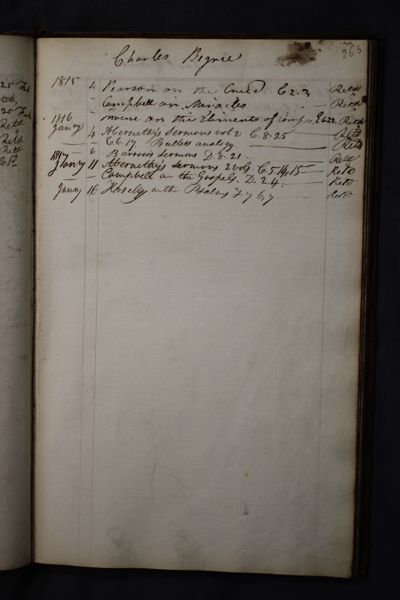 265
Charles Bignie
1815 4 Pearson on the Creed C.2.3 Retd
— Campbell on Miracles — Retd
1816 — more on the Elements of Retd
Jany 4 Abernethy's Sermons vol 2 C.8.25 — Retd
— C.6.17 Butlers analogy — Retd
— 6 Barrows Sermons D.8.21 — Retd
1817 Jany 11 Abernethy's Sermons 2 vols C.5.14,15 — Retd
— Campbell on the Gospels D.2.4 — Retd
Jany 16 Horsley on the Psalms F.7.6,7 — Retd
25
25
Retd
Retd
Retd